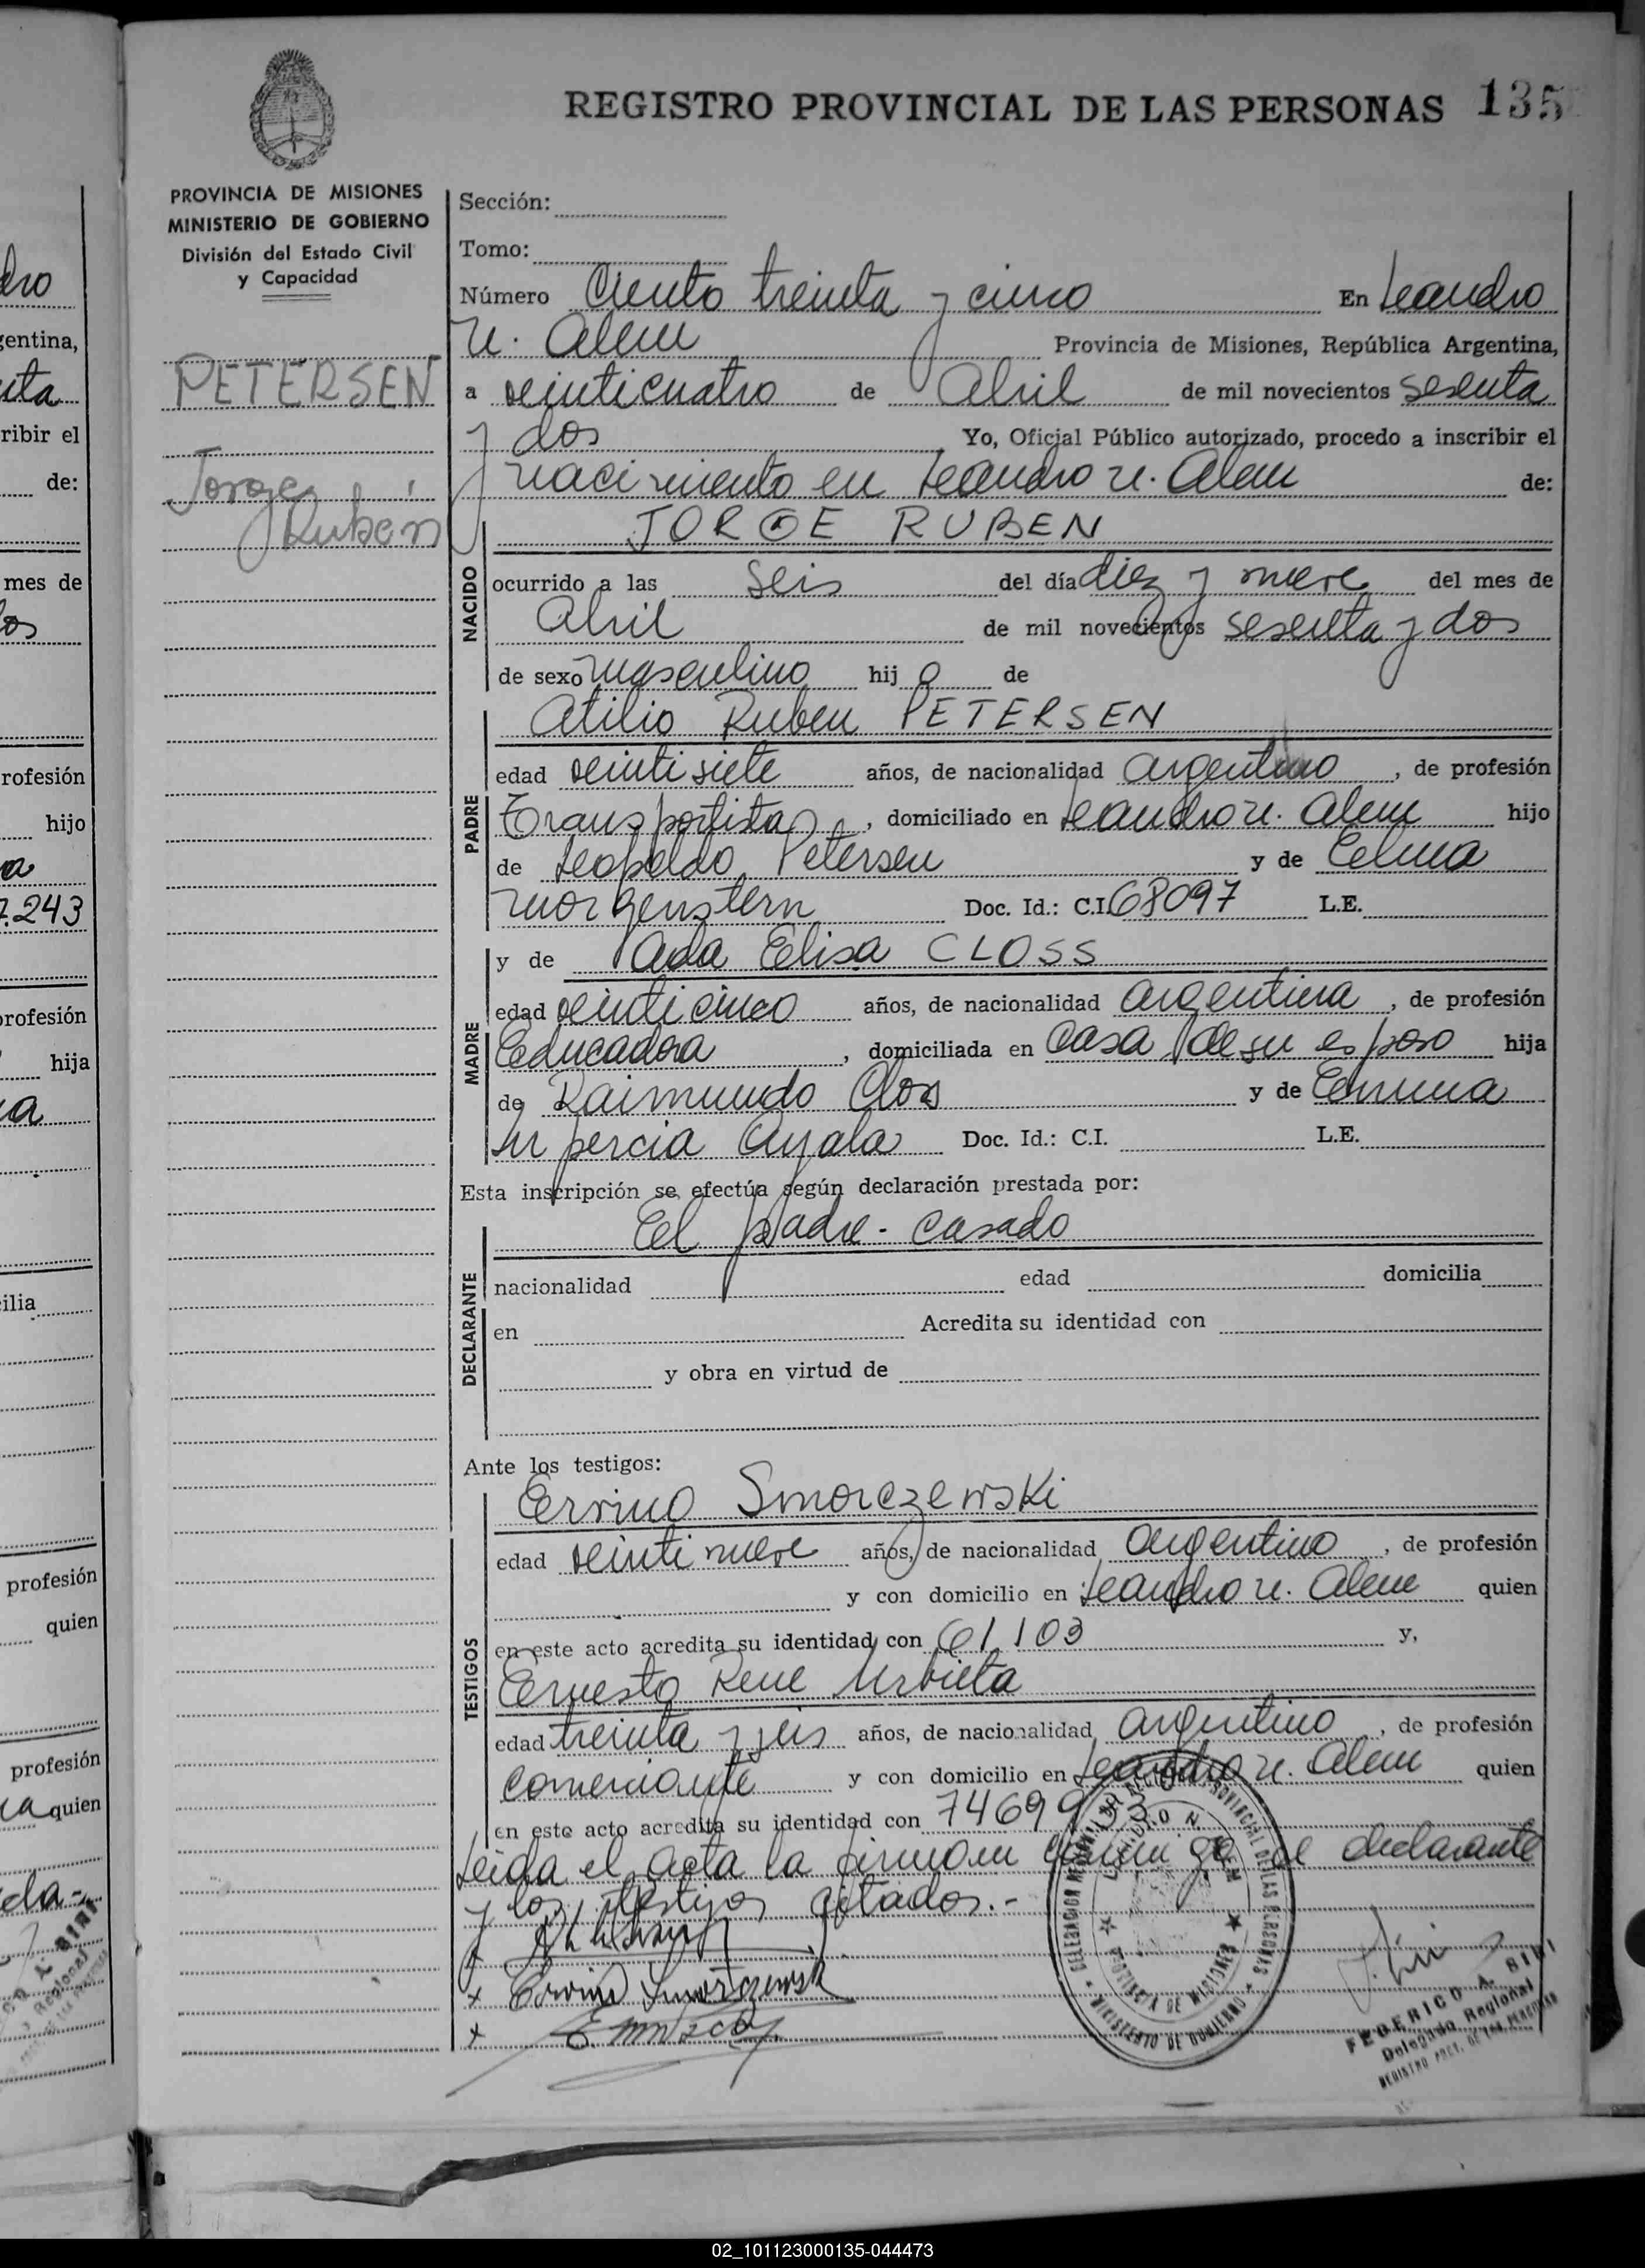 REGISTRO PROVINCIAL DE LAS PERSONAS 135
PROVINCIA DE MISIONES
MINISTERIO DE GOBIERNO
División del Estado Civil
y Capacidad
PETERSEN
Jorge
Rubén
Sección:
Tomo:
Número Ciento treinta y cinco En Leandro
N. Alem Provincia de Misiones, República Argentina,
a veinticuatro de Abril de mil novecientos sesenta
y dos Yo, Oficial Público autorizado, procedo a inscribir el
nacimiento en Leandro N. Alem de:
JORGE RUBEN
NACIDO
ocurrido a las seis del día diez y nueve del mes de
Abril de mil novecientos sesenta y dos
de sexo masculino hij o de
Atilio Ruben PETERSEN
PADRE
edad veintisiete años, de nacionalidad argentino, de profesión
Transportista, domiciliado en Leandro N. Alem hijo
de Leopoldo Petersen y de Elma
Morgenstern Doc. Id.: C.I. 68097 L.E.
y de Ada Elisa CLOSS
MADRE
edad veinticinco años, de nacionalidad argentina, de profesión
Educadora, domiciliada en casa de su esposo hija
de Raimundo Clos y de Emma
Ayala Doc. Id.: C.I. L.E.
Esta inscripción se efectúa según declaración prestada por:
El padre - casado
DECLARANTE
nacionalidad edad domicilia
en Acredita su identidad con
y obra en virtud de
Ante los testigos:
Ervino Smorczewski
TESTIGOS
edad veintinueve años, de nacionalidad argentino, de profesión
y con domicilio en Leandro N. Alem quien
en este acto acredita su identidad con 61.103 y,
Ernesto Rene Urbieta
edad treinta y seis años, de nacionalidad argentino, de profesión
comerciante y con domicilio en Leandro N. Alem quien
en este acto acredita su identidad con 7469933
Leida el acta la firman conmigo el declarante
y los testigos citados.-
FEDERICO A. BIRI
Delegado Regional
REGISTRO PROV. DE LAS PERSONAS
PROVINCIA DE MISIONES
MINISTERIO DE GOBIERNO
gentina,
ribir el
de:
mes de
rofesión
hijo
7.243
profesión
hija
ilia
profesión
quien
profesión
quien
02_101123000135-044473